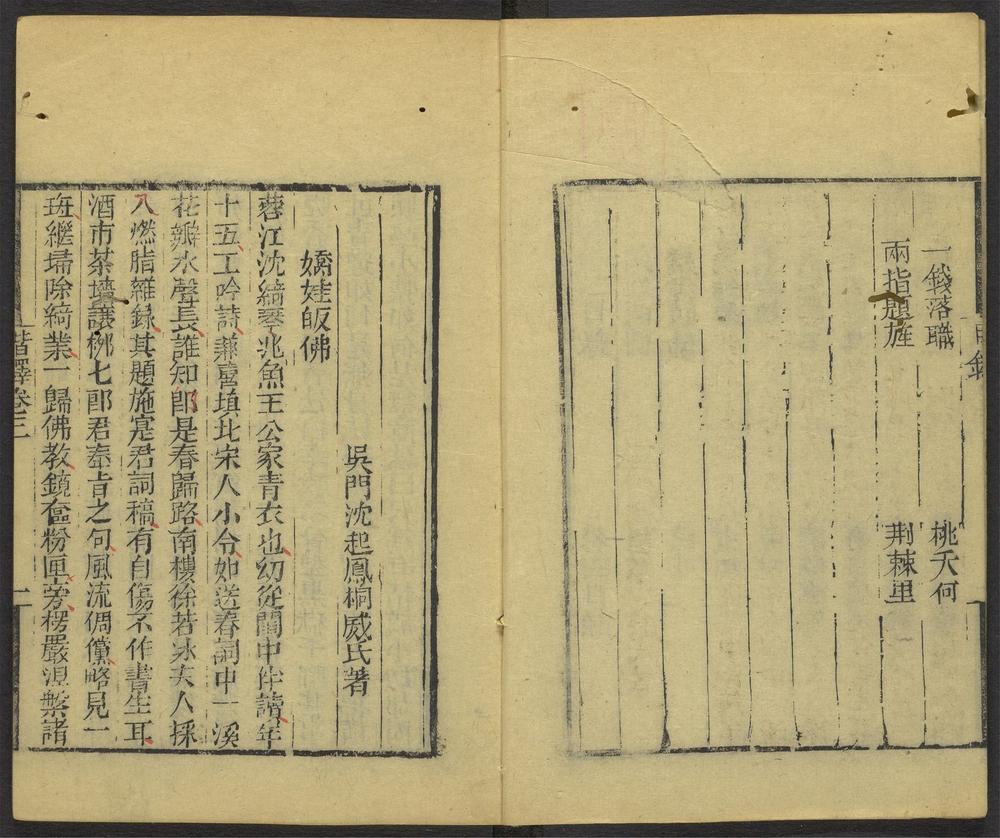 目錄
一錢落職
桃夭何
兩指題旌
荆棘里
吳門沈起鳳桐威氏著
嬌娃皈佛
蓉江沈綺琴兆魚王公家青衣也幼從閨中伴讀年
十五工吟詩兼喜塡北宋人小令如送春詞中一溪
花瓣水聲長誰知郎是春歸路南樓徐若冰夫人採
入燃脂雜錄其題施寔君詞稿有自傷不作書生耳
酒市茶墻讓栁七郎君秦肯之句風流倜儻略見一
斑繼埽除綺業一歸佛教鏡奩粉匣旁楞嚴湼槃諸
諧鐸卷三
一